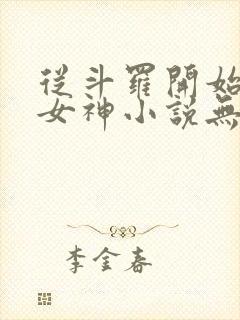 從斗羅開始
女神小說無
李金春